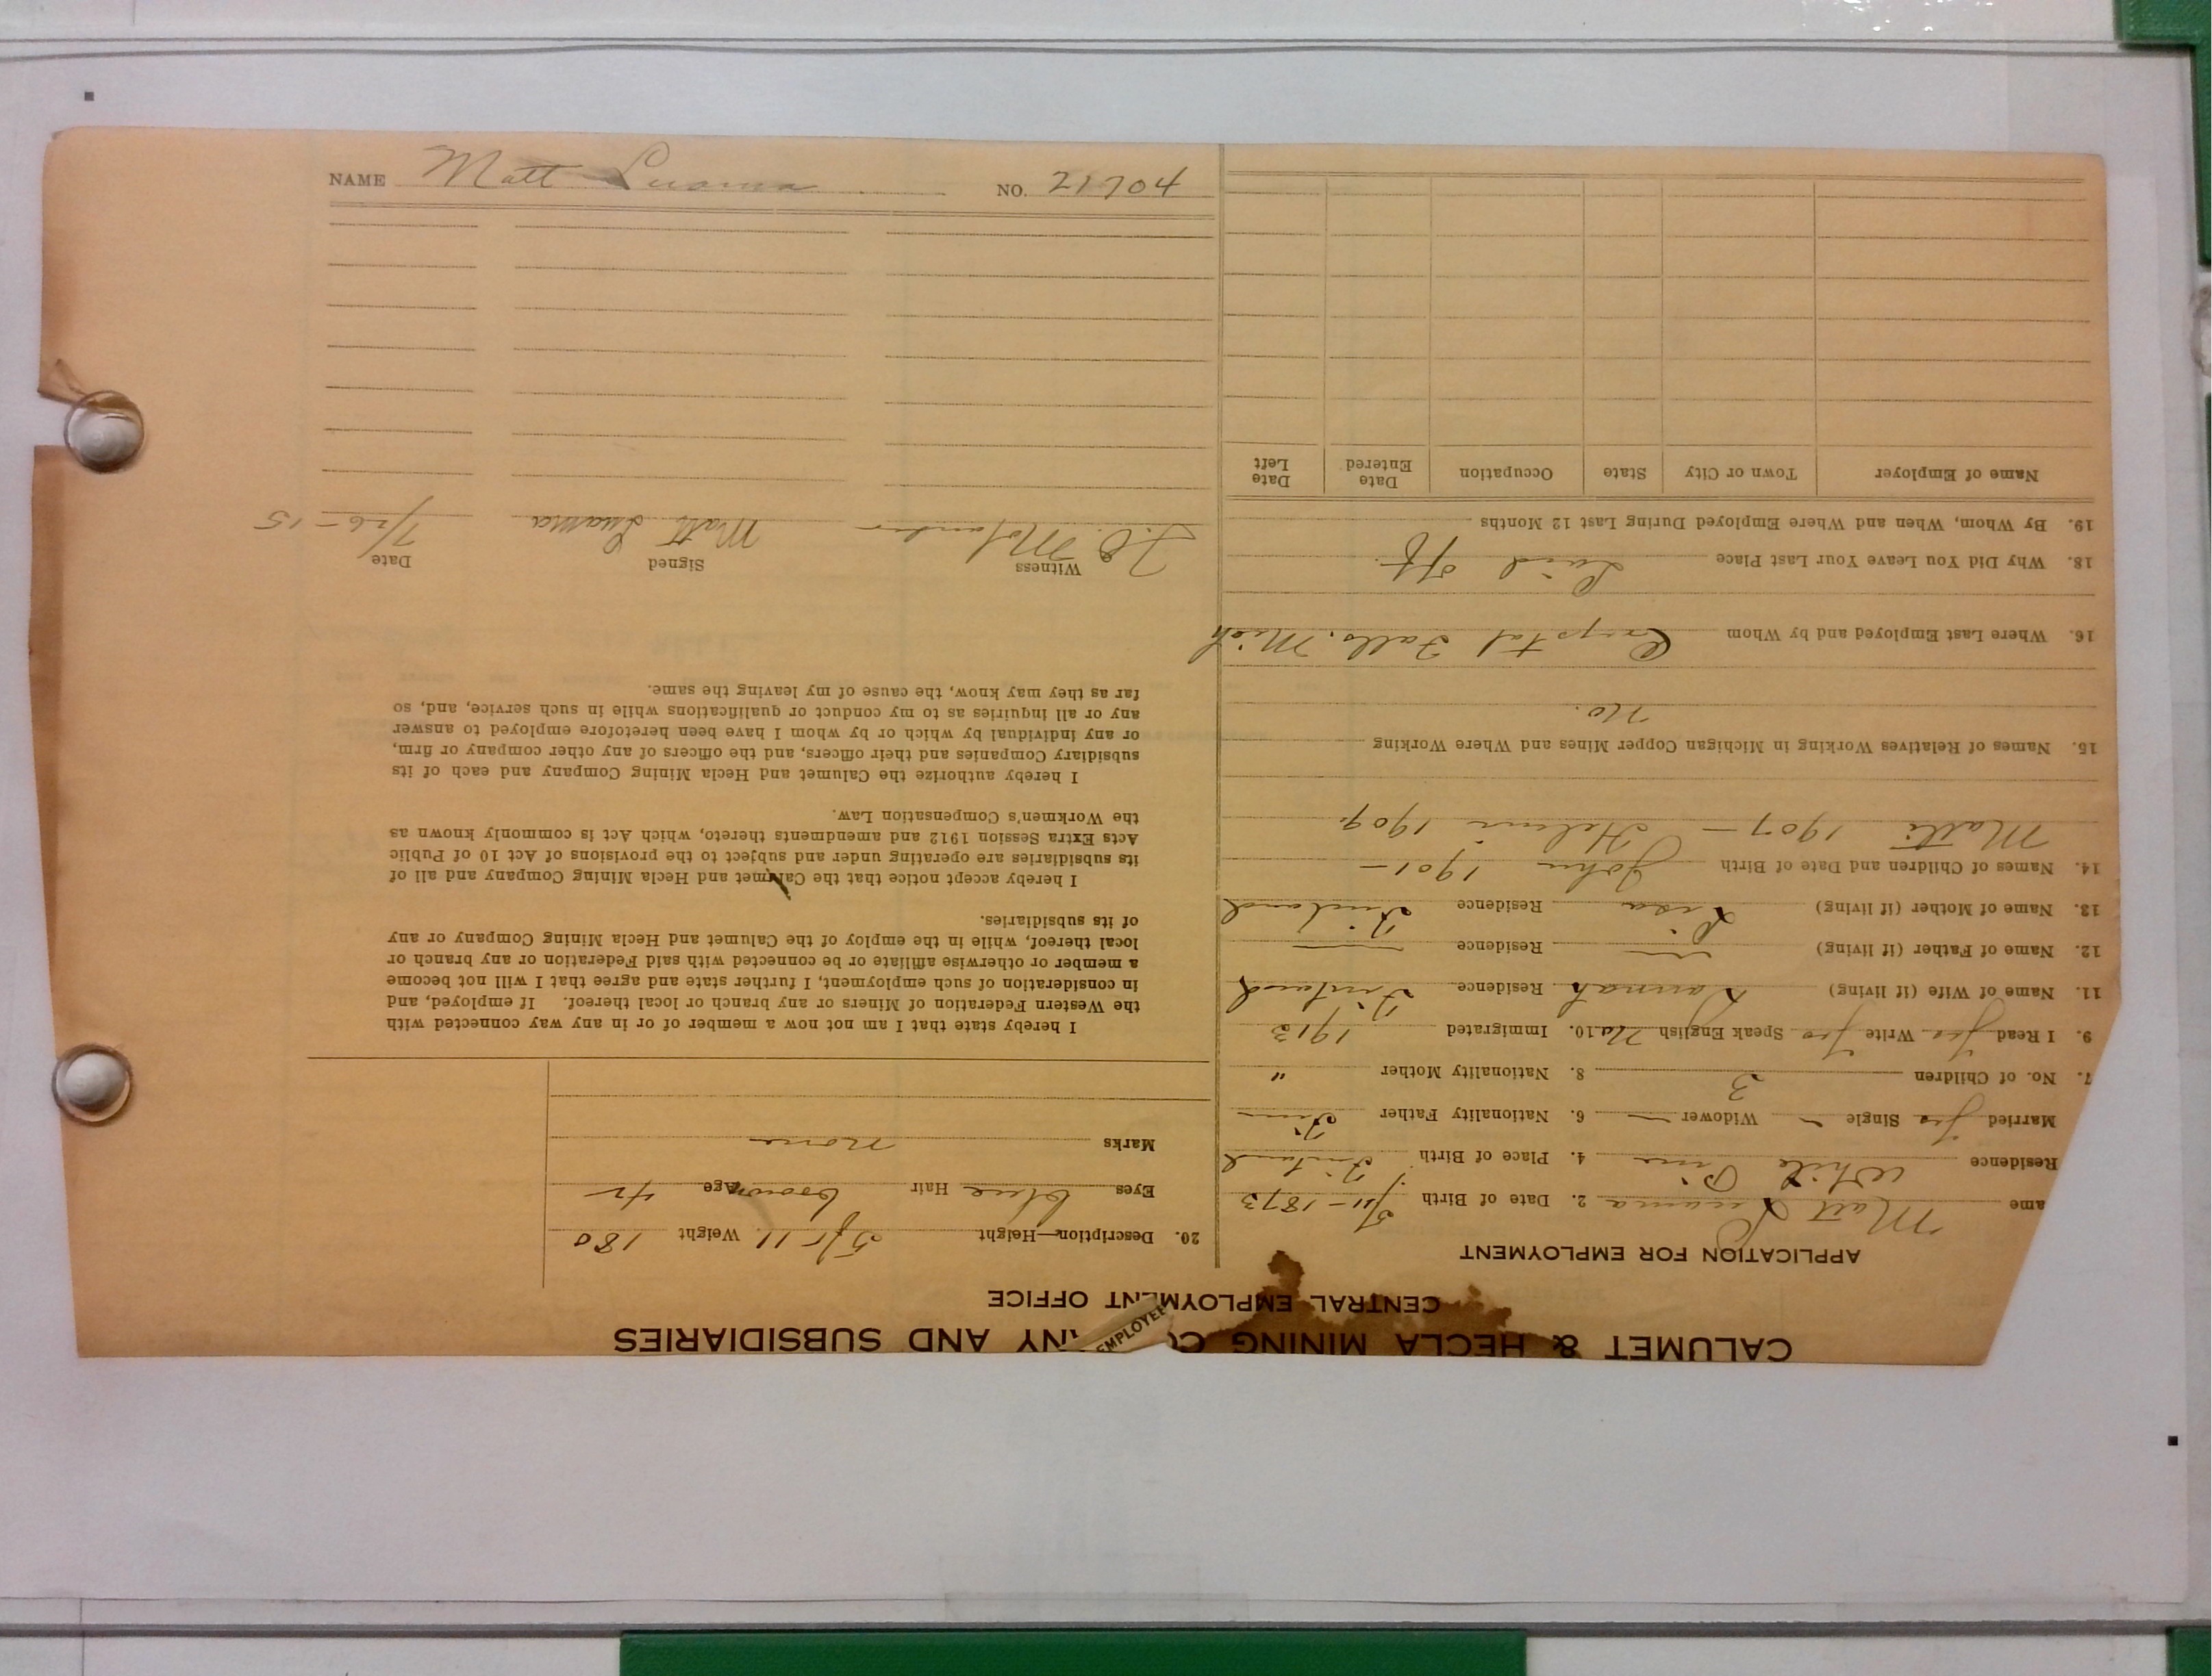 NAME Matt Luoma NO. 21704
CALUMET & HECLA MINING CO NY AND SUBSIDIARIES
EMPLOYEE
CENTRAL EMPLOYMENT OFFICE
APPLICATION FOR EMPLOYMENT
ame Matt Luoma 2. Date of Birth 5/11-1873
Residence White Pine 4. Place of Birth Finland
Married Yes Single – Widower – 6. Nationality Father Finn
7. No. of Children 3 8. Nationality Mother "
9. I Read Yes Write Yes Speak English No 10. Immigrated 1913
11. Name of Wife (if living) Hannah Residence Finland
12. Name of Father (if living) — Residence —
13. Name of Mother (if living) Lisa Residence Finland
14. Names of Children and Date of Birth John 1901 –
Matti 1907 – Helmi 1909
15. Names of Relatives Working in Michigan Copper Mines and Where Working
no.
16. Where Last Employed and by Whom Crystal Falls. Mich
18. Why Did You Leave Your Last Place Laid off.
19. By Whom, When and Where Employed During Last 12 Months
Name of Employer Town or City State Occupation Date Entered Date Left
20. Description—Height 5ft 11 Weight 180
Eyes blue Hair brown Age 42
Marks none
I hereby state that I am not now a member of or in any way connected with
the Western Federation of Miners or any branch or local thereof. If employed, and
in consideration of such employment, I further state and agree that I will not become
a member or otherwise affiliate or be connected with said Federation or any branch or
local thereof, while in the employ of the Calumet and Hecla Mining Company or any
of its subsidiaries.
I hereby accept notice that the Calumet and Hecla Mining Company and all of
its subsidiaries are operating under and subject to the provisions of Act 10 of Public
Acts Extra Session 1912 and amendments thereto, which Act is commonly known as
the Workmen's Compensation Law.
I hereby authorize the Calumet and Hecla Mining Company and each of its
subsidiary Companies and their officers, and the officers of any other company or firm,
or any individual by which or by whom I have been heretofore employed to answer
any or all inquiries as to my conduct or qualifications while in such service, and, so
far as they may know, the cause of my leaving the same.
Witness Signed Date
Matt Luoma 7/26-15